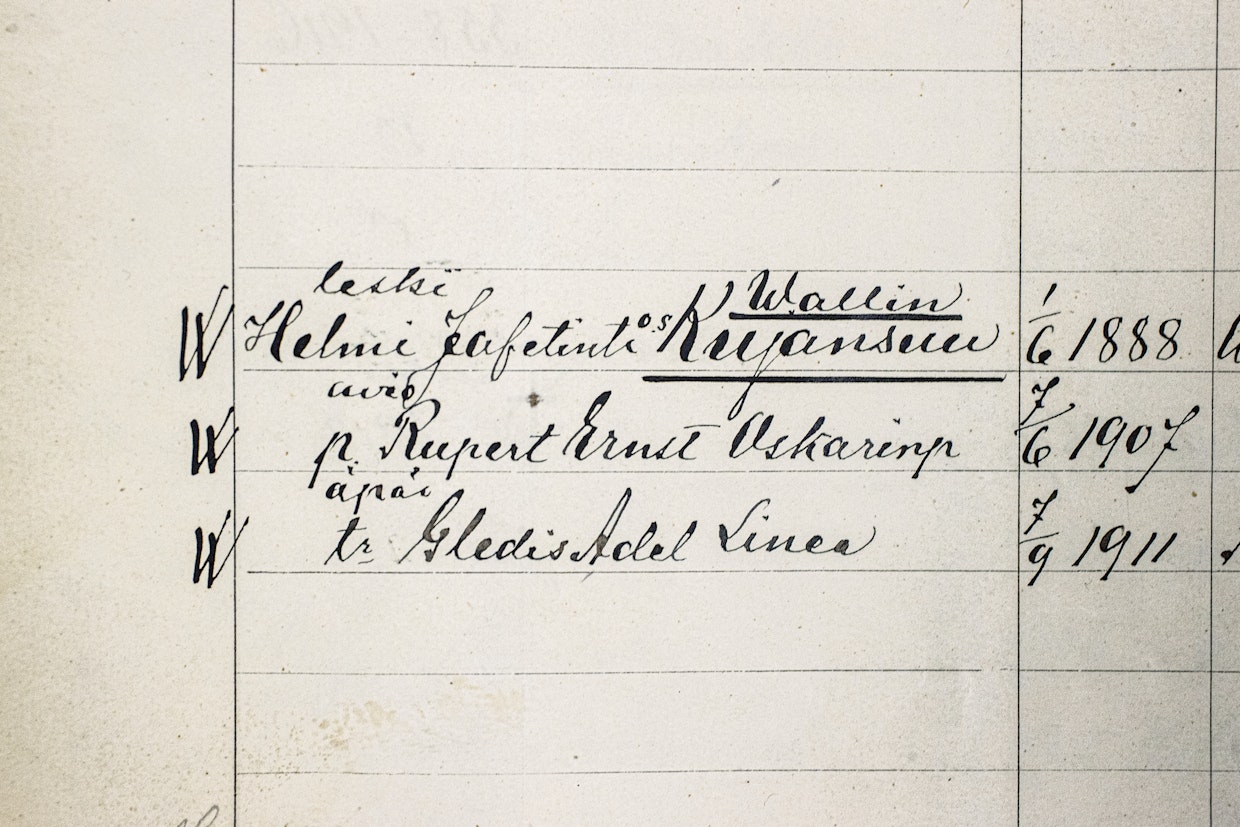 leski Wallin
W Helmi Jafetint. o.s. Kujansuu 1/6 1888
avio
W p. Rupert Ernst Oskarinp 7/6 1907
äpär
W tr Gledis Adel Linea 7/9 1911